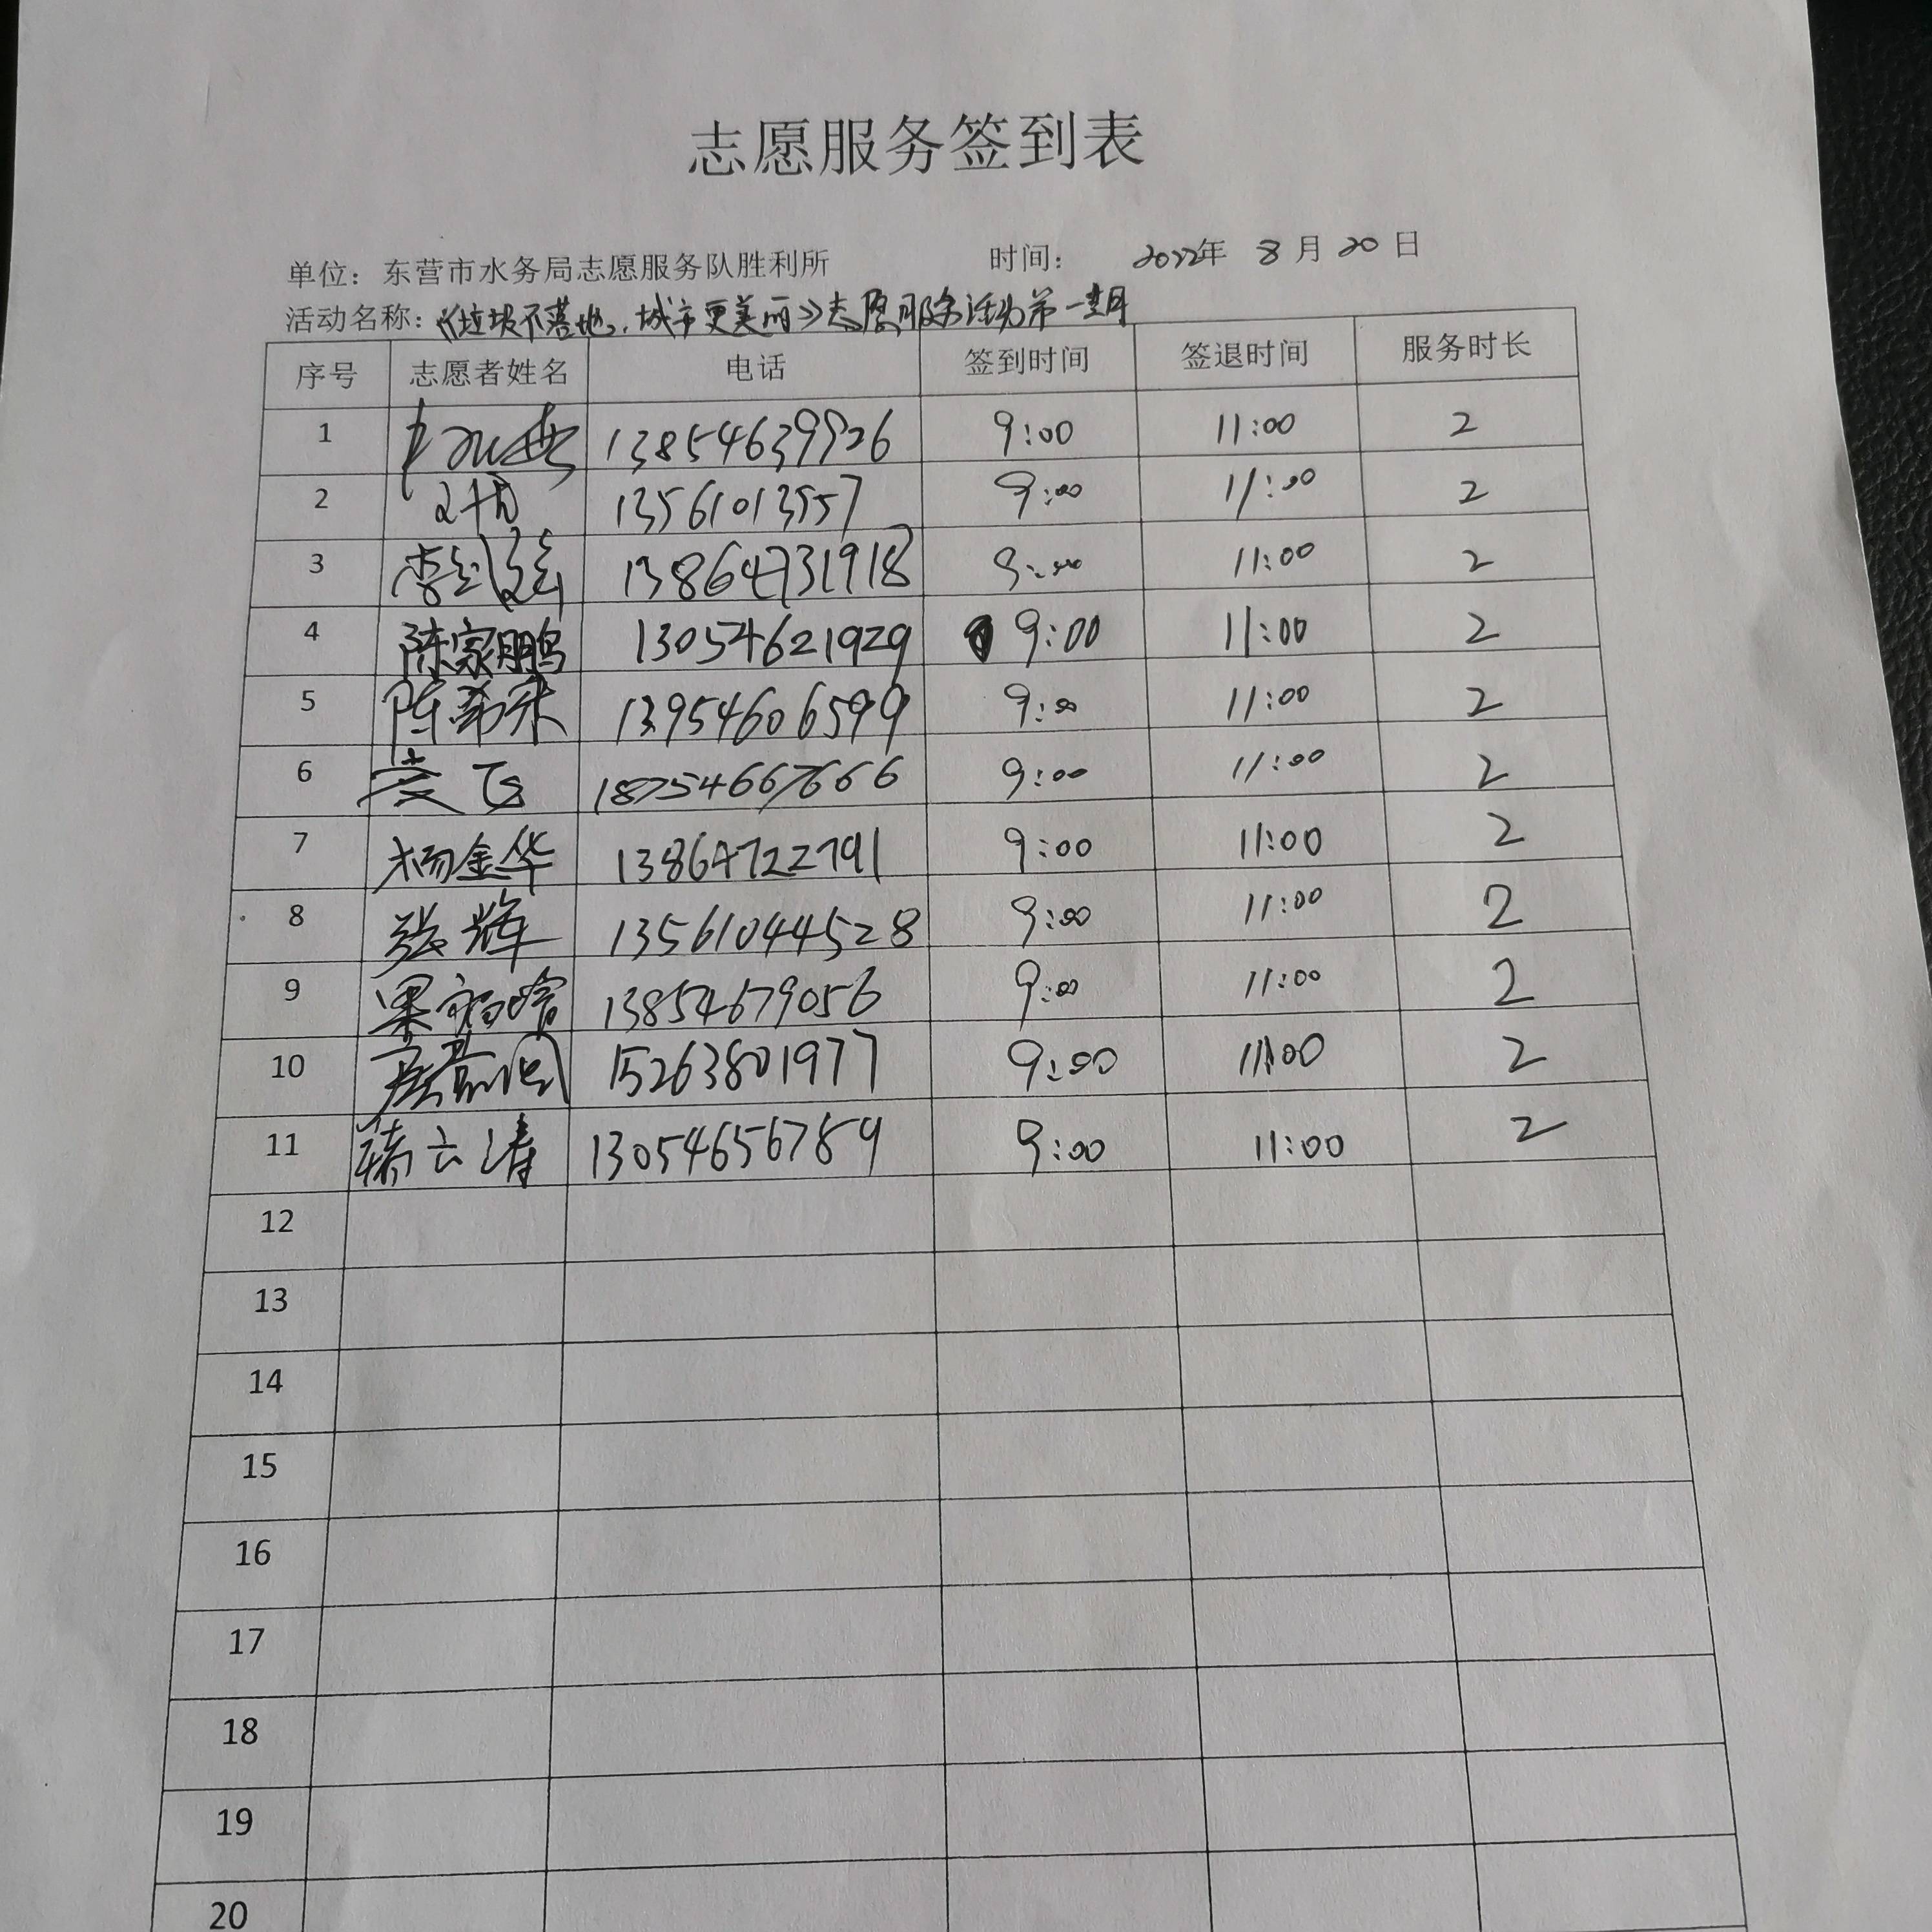 志愿服务签到表
单位：东营市水务局志愿服务队胜利所 时间： 2022年 8月20日
活动名称：《垃圾不落地，城市更美丽》志愿服务活动第一期
序号 志愿者姓名 电话 签到时间 签退时间 服务时长
1 13854639926 9:00 11:00 2
2 13561013557 9:00 11:00 2
3 13864731918 9:00 11:00 2
4 陈家鹏 13054621929 9:00 11:00 2
5 陈希来 13954606599 9:00 11:00 2
6 18754667666 9:00 11:00 2
7 杨金华 13864722791 9:00 11:00 2
8 张辉 13561044528 9:00 11:00 2
9 13854679056 9:00 11:00 2
10 15263801977 9:00 11:00 2
11 13054656789 9:00 11:00 2
12
13
14
15
16
17
18
19
20